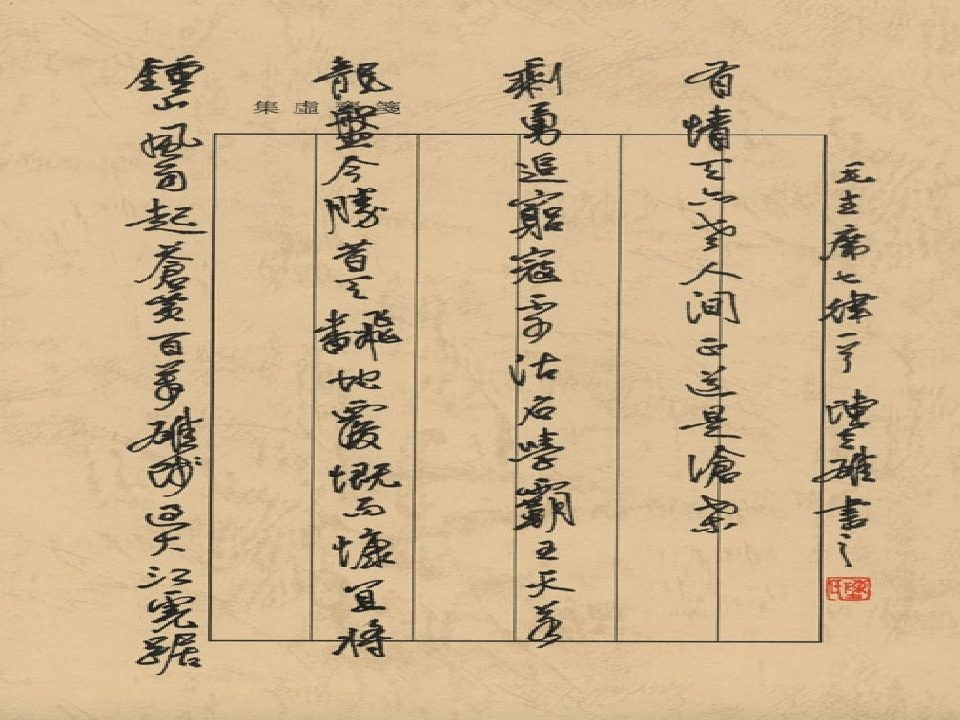 集虛齋箋
鍾山風雨起蒼黃百萬雄師過大江虎踞
龍盤今勝昔天翻地覆慨而慷宜將
剩勇追窮寇不可沽名學霸王天若
有情天亦老人間正道是滄桑
毛主席七律一首 雄書之